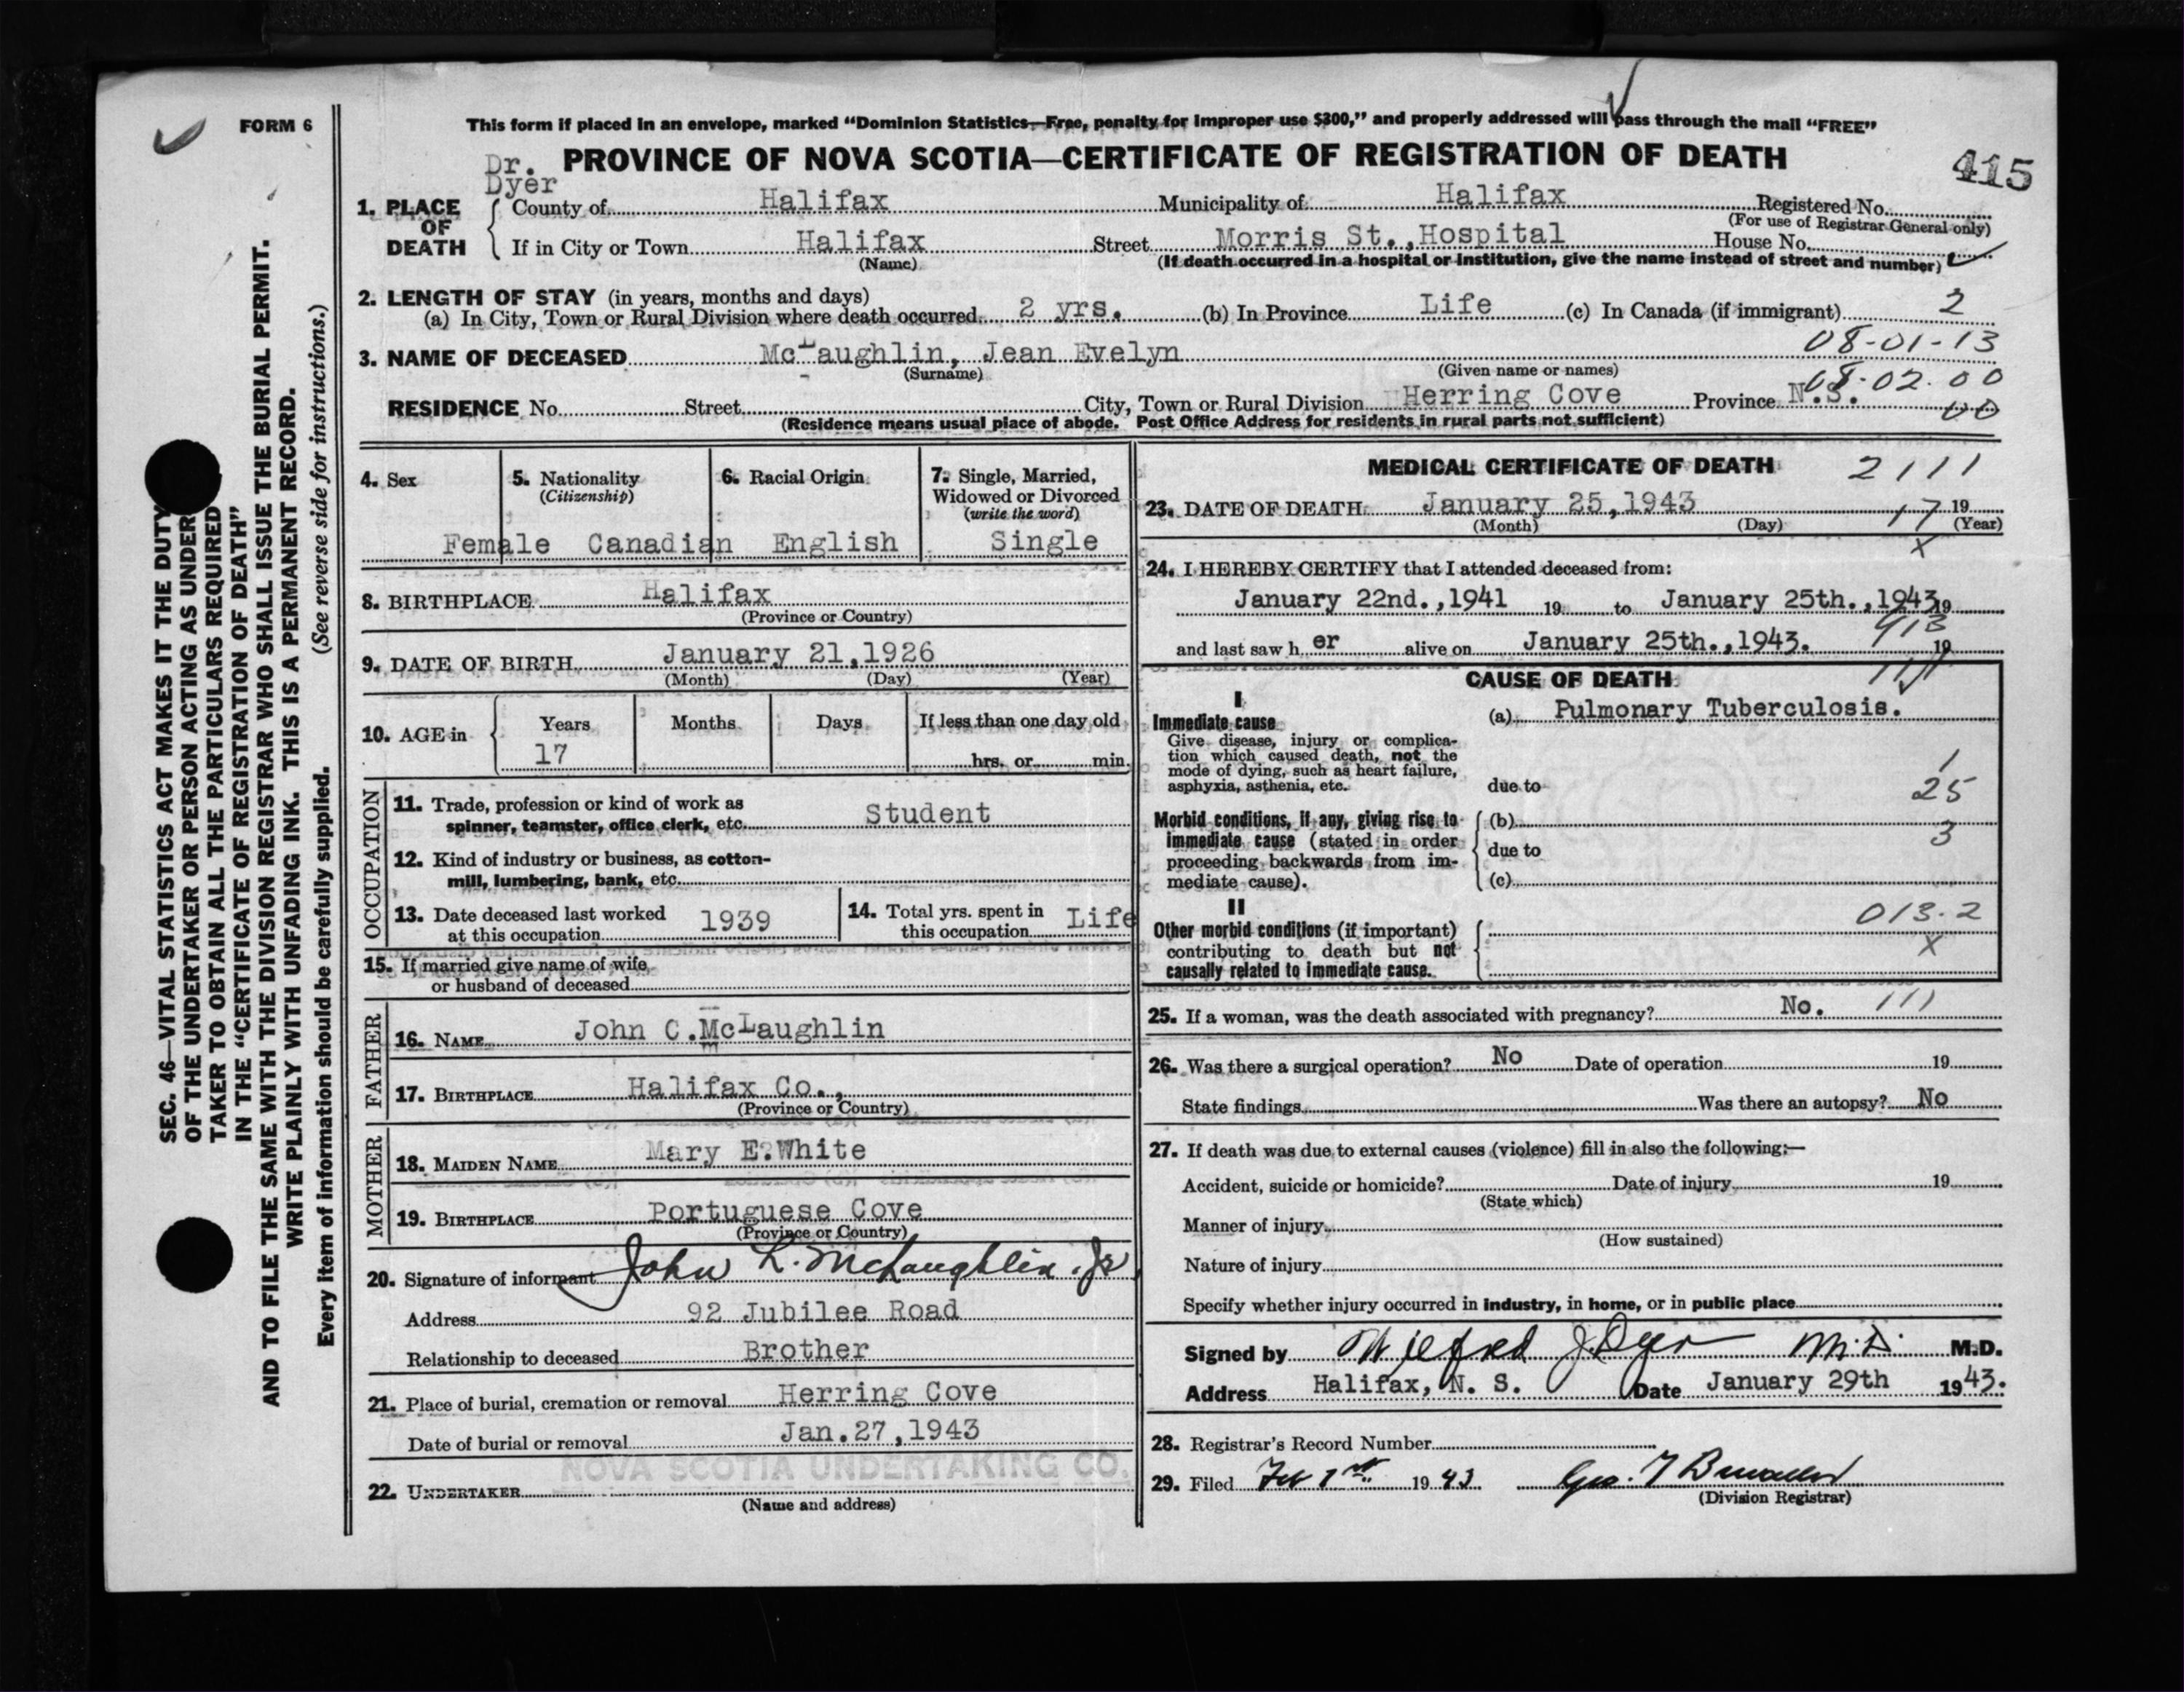 FORM 6
This form if placed in an envelope, marked “Dominion Statistics—Free, penalty for improper use $300,” and properly addressed will pass through the mail “FREE”
Dr. Dyer
PROVINCE OF NOVA SCOTIA—CERTIFICATE OF REGISTRATION OF DEATH
415
1. PLACE OF DEATH
County of Halifax Municipality of Halifax Registered No.
(For use of Registrar General only)
If in City or Town Halifax Street Morris St., Hospital House No.
(Name) (If death occurred in a hospital or institution, give the name instead of street and number)
2. LENGTH OF STAY (in years, months and days)
(a) In City, Town or Rural Division where death occurred 2 yrs. (b) In Province Life (c) In Canada (if immigrant) 2
08-01-13
3. NAME OF DECEASED McLaughlin, Jean Evelyn
(Surname) (Given name or names)
08-02-00
RESIDENCE No. Street City, Town or Rural Division Herring Cove Province N.S.
00
(Residence means usual place of abode. Post Office Address for residents in rural parts not sufficient)
SEC. 46—VITAL STATISTICS ACT MAKES IT THE DUTY
OF THE UNDERTAKER OR PERSON ACTING AS UNDER
TAKER TO OBTAIN ALL THE PARTICULARS REQUIRED
IN THE “CERTIFICATE OF REGISTRATION OF DEATH”
AND TO FILE THE SAME WITH THE DIVISION REGISTRAR WHO SHALL ISSUE THE BURIAL PERMIT.
WRITE PLAINLY WITH UNFADING INK. THIS IS A PERMANENT RECORD.
Every item of information should be carefully supplied. (See reverse side for instructions.)
4. Sex 5. Nationality 6. Racial Origin 7. Single, Married,
(Citizenship) Widowed or Divorced
(write the word)
Female Canadian English Single
8. BIRTHPLACE Halifax
(Province or Country)
9. DATE OF BIRTH January 21,1926
(Month) (Day) (Year)
10. AGE in Years Months Days If less than one day old
17 hrs. or min.
OCCUPATION
11. Trade, profession or kind of work as
spinner, teamster, office clerk, etc. Student
12. Kind of industry or business, as cotton-
mill, lumbering, bank, etc.
13. Date deceased last worked
at this occupation 1939
14. Total yrs. spent in
this occupation Life
15. If married give name of wife
or husband of deceased
FATHER
16. NAME John C.McLaughlin
17. BIRTHPLACE Halifax Co.,
(Province or Country)
MOTHER
18. MAIDEN NAME Mary E.White
19. BIRTHPLACE Portuguese Cove
(Province or Country)
20. Signature of informant John L. McLaughlin Jr
Address 92 Jubilee Road
Relationship to deceased Brother
21. Place of burial, cremation or removal Herring Cove
Date of burial or removal Jan.27,1943
NOVA SCOTIA UNDERTAKING CO.
22. UNDERTAKER
(Name and address)
MEDICAL CERTIFICATE OF DEATH 2111
23. DATE OF DEATH January 25,1943 19
(Month) (Day) (Year)
17
X
24. I HEREBY CERTIFY that I attended deceased from:
January 22nd.,1941 19 to January 25th.,1943 19
and last saw h er alive on January 25th.,1943. 19
CAUSE OF DEATH
I
Immediate cause
(a) Pulmonary Tuberculosis.
Give disease, injury or complica-
tion which caused death, not the
mode of dying, such as heart failure,
asphyxia, asthenia, etc.
due to
1
25
Morbid conditions, if any, giving rise to
immediate cause (stated in order
proceeding backwards from im-
mediate cause).
(b)
3
due to
(c)
II
Other morbid conditions (if important)
contributing to death but not
causally related to immediate cause.
013.2
X
25. If a woman, was the death associated with pregnancy? No. 111
26. Was there a surgical operation? No Date of operation 19
State findings Was there an autopsy? No
27. If death was due to external causes (violence) fill in also the following:—
Accident, suicide or homicide? Date of injury 19
(State which)
Manner of injury
(How sustained)
Nature of injury
Specify whether injury occurred in industry, in home, or in public place
Signed by Wilfred J. Dyer M.D. M.D.
Address Halifax, N. S. Date January 29th 1943.
28. Registrar's Record Number
29. Filed Feb 1st 1943 Geo.
(Division Registrar)